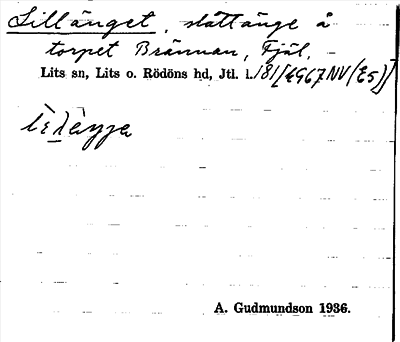 Lillänget, slåttänge å
torpet Brännan, Fjäl.
Lits sn, Lits o. Rödöns hd, Jtl. l.181 [4967NV(E5)]
A. Gudmundson 1936.